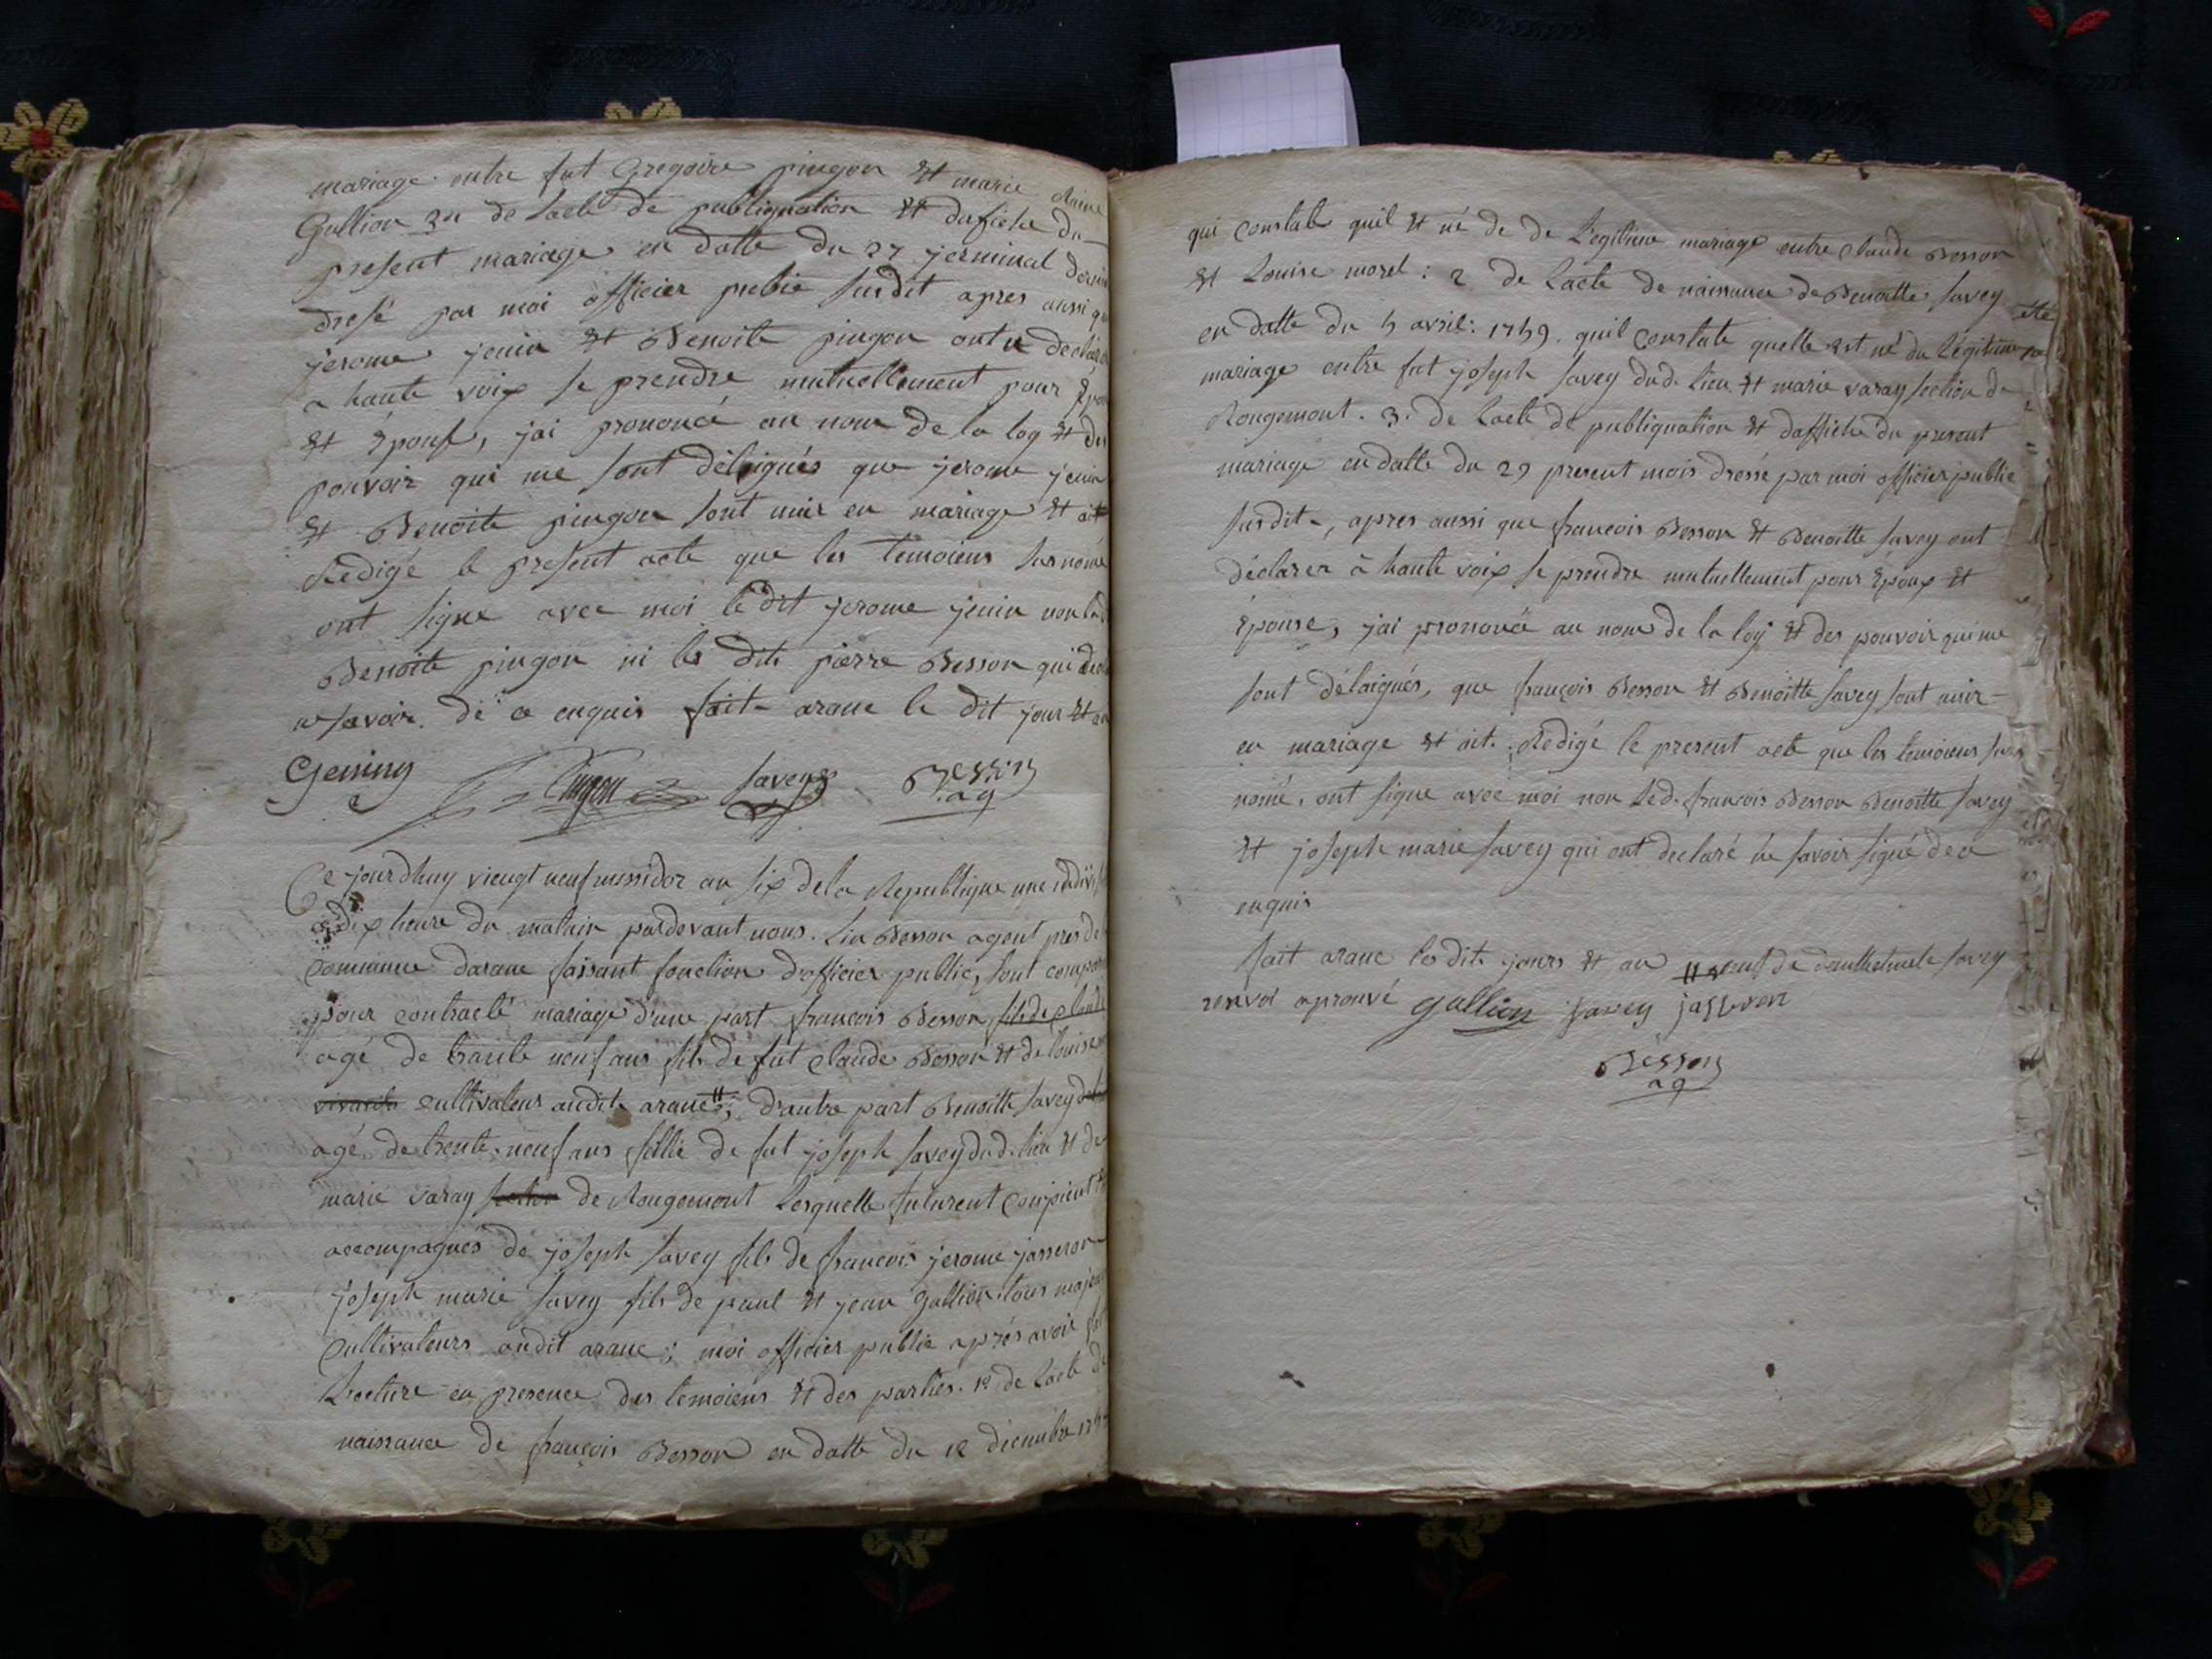 mariage entre fut Gregoire pingon Et marie
Gullion 3n de lacte de publiquation Et dafiche du
present mariage en datte du 27 jerminal dernie
dresé par moi officier public susdit apres aussi que
jerome jenin Et Benoite pingon ont declaré
a haute voix se prendre mutuellement pour Epou
Et Epouse, jai prononcé au nom de la loy Et des
pouvoir qui me sont délaigués que jerome jenin
Et Benoite pingon sont unir en mariage Et ait
Redigé le present acte que les temoiens sus nomé
ont signe avec moi le dit jerome jenin non la
Benoite pingon ni les dits pierre Besson qui
ne savoir de ce enquis fait aranc le dit jour Et an
Genin Pingon Savey Besson
ag
Ce jourdhuy viengt neuf messidor an six de la Republique une indivis
a dix heure du matain pardevant nous Besson agent pres de
commune daranc faisant fonction dofficier public, sont compar
pour contracté mariage d'une part francois Besson fils de claude
agé de trante neuf ans fils de fut claude Besson Et de louise
cultivateur audit aranc ; d'autre part Benoitte savey
agé de trente neuf ans fillie de fut joseph savey dud. lieu Et de
marie varay de Rougemont lesquelle futurent
accompagnés de joseph savey fils de francois jerome jasseron
joseph marie savey fils de paul Et jean gullion tous majeur
cultivateurs audit aranc ; moi officier public après avoir
Lecture en presence des temoiens Et des parties. 1e de lacte de
naissance de françois Besson en datte du 12 dicembre
qui constate quil Et né de de Legitime mariage entre claude Besson
Et Louise morel : 2 de Lacte de naissance de Benoitte savey
en datte du 5 avril : 1759. quil constate quelle est né du Légitime
mariage entre fut joseph savey dud. lieu Et marie varay section de
Rougemont. 3. de Lacte de publiquation Et daffiche du present
mariage en datte du 29 present mois dressé par moi officier public
susdit, apres aussi que francois Besson Et Benoitte savey ont
déclarer à haute voix se prendre mutuellement pour Epoux Et
Epouse, jai prononcé au nom de la loy Et des pouvoir qui me
sont délaigués, que françois Besson Et Benoitte savey sont unir
en mariage Et ait. Redigé le present acte que les temoiens sus
nomé, ont signe avec moi non led. francois Besson Benoitte savey
Et joseph marie savey qui ont declaré ne savoir signé de ce
enquis
fait aranc les dits jours Et an veuf de savey
renvoi aprouvé gullion savey jasseron
Besson
ag